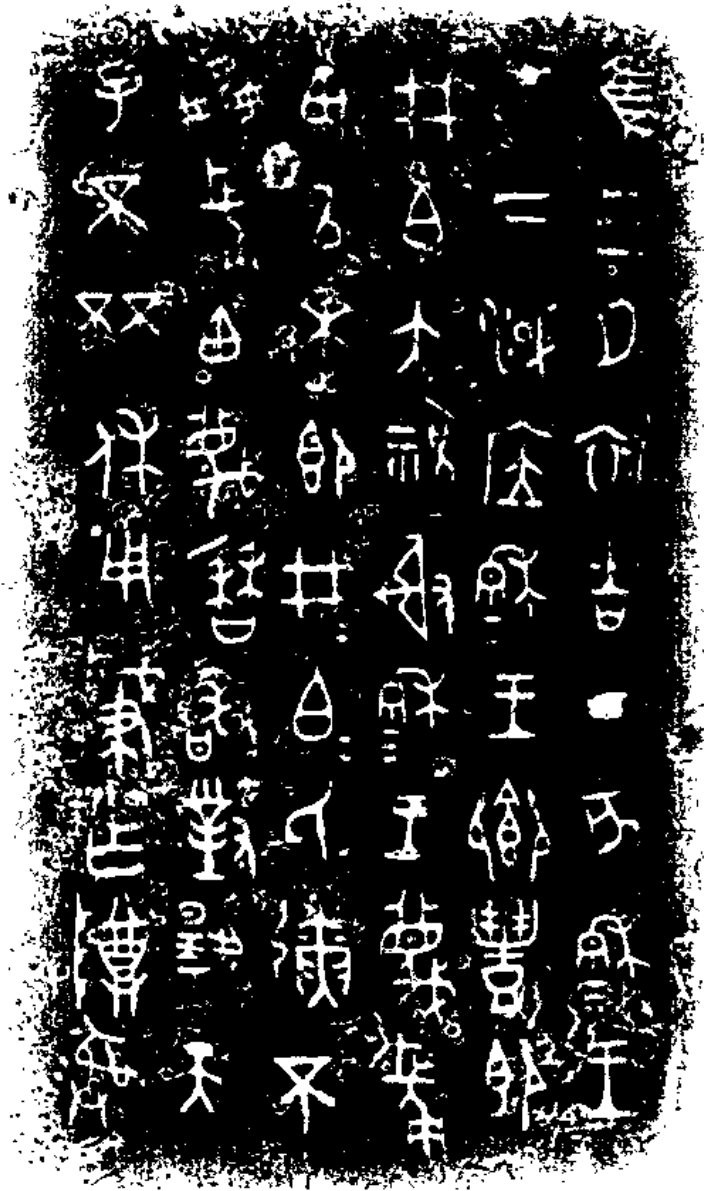 隹三月初吉丁亥穆王
才下淢应穆王鄉豊即
井白大祝射穆王蔑長
甶以逨即井白氏不
長甶蔑曆敢對揚天
子不㔻休用肇乍尊彝